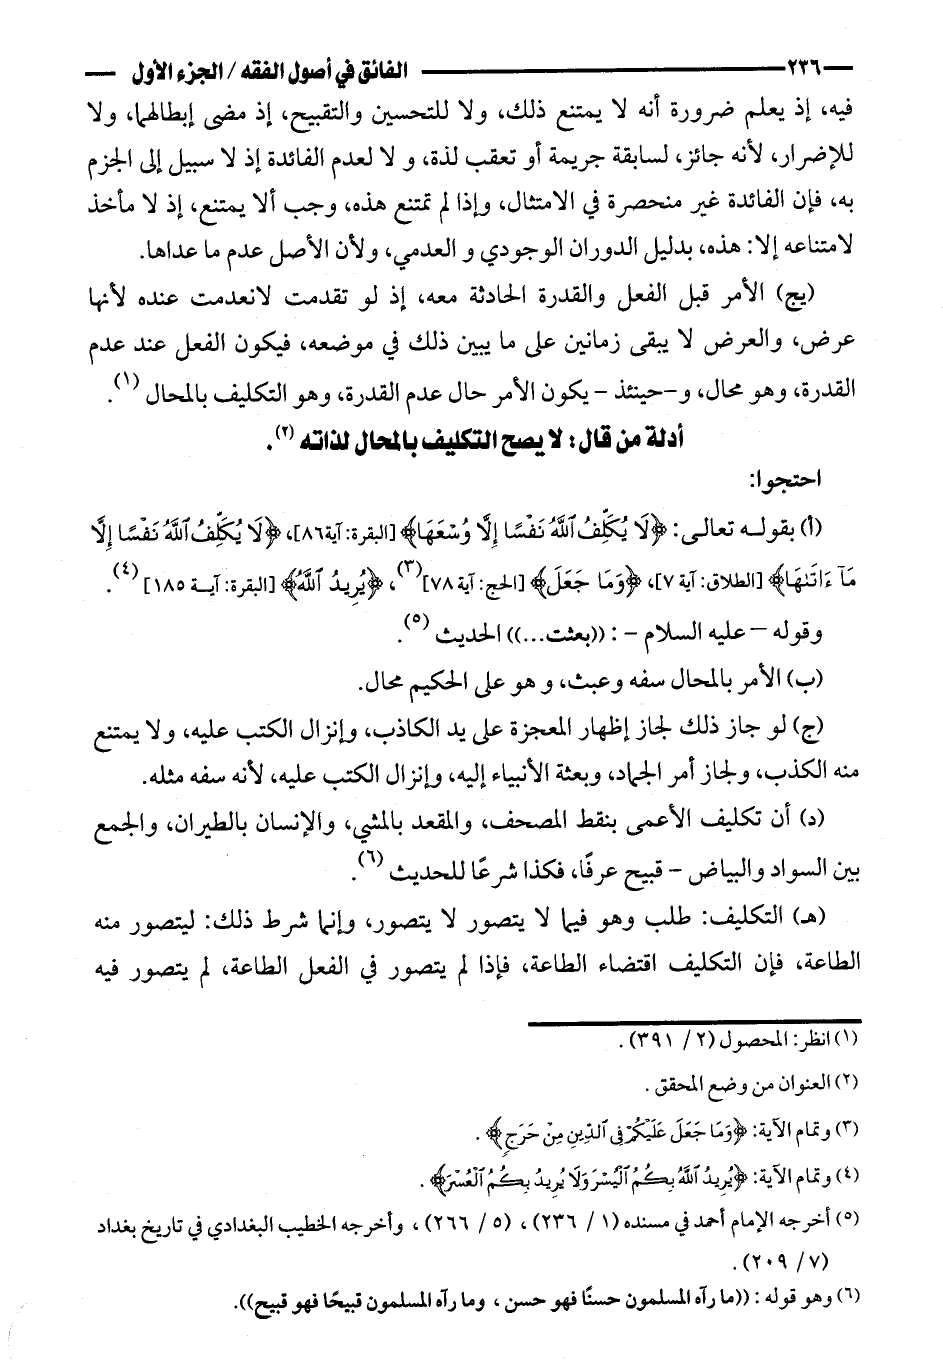 ٢٣٦ الفائق في أصول الفقه / الجزء الأول
فيه، إذ يعلم ضرورة أنه لا يمتنع ذلك، ولا للتحسين والتقبيح، إذ مضى إبطالهما، ولا
للإضرار، لأنه جائز، لسابقة جريمة أو تعقب لذة، و لا لعدم الفائدة إذ لا سبيل إلى الجزم
به، فإن الفائدة غير منحصرة في الامتثال، وإذا لم تمتنع هذه، وجب ألا يمتنع، إذ لا مأخذ
لامتناعه إلا: هذه، بدليل الدوران الوجودي و العدمي، ولأن الأصل عدم ما عداها.
(يج) الأمر قبل الفعل والقدرة الحادثة معه، إذ لو تقدمت لانعدمت عنده لأنها
عرض، والعرض لا يبقى زمانين على ما يبين ذلك في موضعه، فيكون الفعل عند عدم
القدرة، وهو محال، و-حينئذ – يكون الأمر حال عدم القدرة، وهو التكليف بالمحال (١).
أدلة من قال: لا يصح التكليف بالمحال لذاته (٢).
احتجوا:
(أ) بقوله تعالى: ﴿لَا يُكَلِّفُ ٱللَّهُ نَفْسًا إِلَّا وُسْعَهَا﴾ [البقرة: آية٨٦]، ﴿لَا يُكَلِّفُ ٱللَّهُ نَفْسًا إِلَّا
مَآ ءَاتَىٰهَا﴾ [الطلاق: آية ٧]، ﴿وَمَا جَعَلَ﴾ [الحج: آية ٧٨] (٣)، ﴿يُرِيدُ ٱللَّهُ﴾ [البقرة: آيــة ١٨٥] (٤).
وقوله – عليه السلام – : ((بعثت...)) الحديث (٥).
(ب) الأمر بالمحال سفه وعبث، و هو على الحكيم محال.
(ج) لو جاز ذلك لجاز إظهار المعجزة على يد الكاذب، وإنزال الكتب عليه، ولا يمتنع
منه الكذب، ولجاز أمر الجماد، وبعثة الأنبياء إليه، وإنزال الكتب عليه، لأنه سفه مثله.
(د) أن تكليف الأعمى بنقط المصحف، والمقعد بالمشي، والإنسان بالطيران، والجمع
بين السواد والبياض – قبيح عرفًا، فكذا شرعًا للحديث (٦).
(هـ) التكليف: طلب وهو فيما لا يتصور لا يتصور، وإنما شرط ذلك: ليتصور منه
الطاعة، فإن التكليف اقتضاء الطاعة، فإذا لم يتصور في الفعل الطاعة، لم يتصور فيه
(١) انظر: المحصول (٢ / ٣٩١) .
(٢) العنوان من وضع المحقق .
(٣) وتمام الآية: ﴿وَمَا جَعَلَ عَلَيْكُمْ فِى ٱلدِّينِ مِنْ حَرَجٍ﴾ .
(٤) وتمام الآية: ﴿يُرِيدُ ٱللَّهُ بِكُمُ ٱلْيُسْرَ وَلَا يُرِيدُ بِكُمُ ٱلْعُسْرَ﴾ .
(٥) أخرجه الإمام أحمد في مسنده (١ / ٢٣٦) ، (٥ / ٢٦٦) ، وأخرجه الخطيب البغدادي في تاريخ بغداد
(٧ / ٢٠٩) .
(٦) وهو قوله : ((ما رآه المسلمون حسنًا فهو حسن ، وما رآه المسلمون قبيحًا فهو قبيح)).